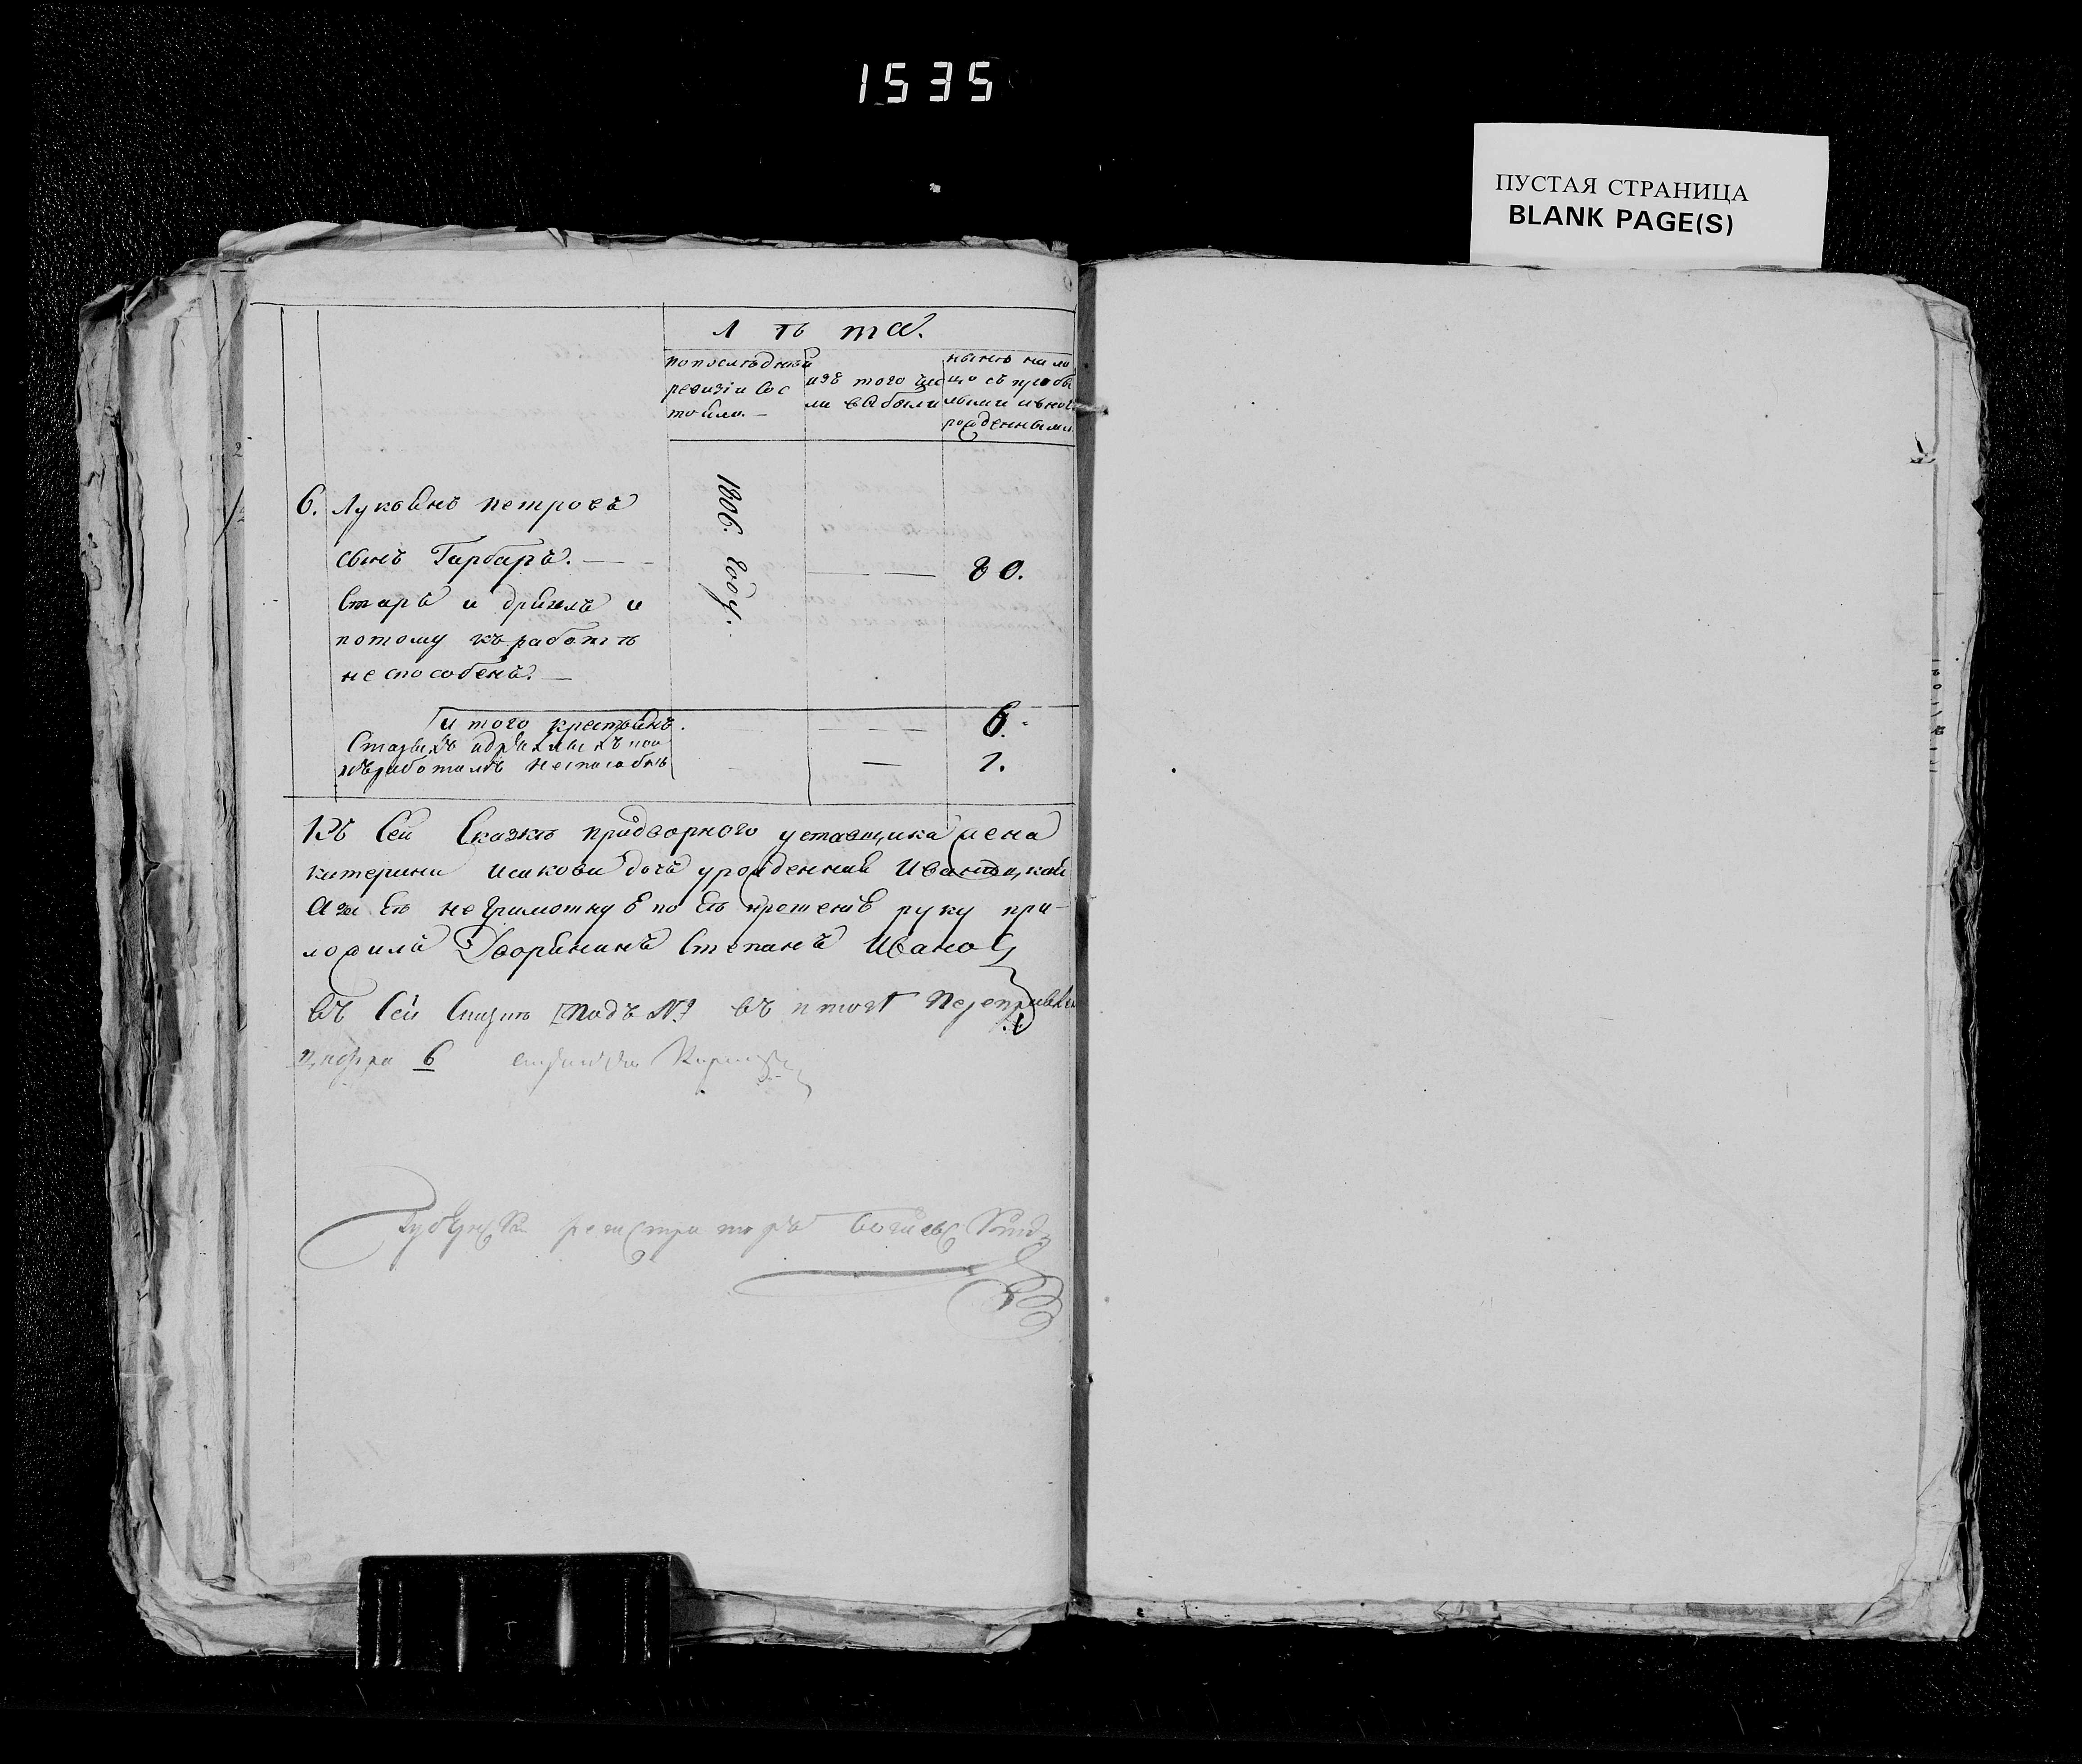 1535
ПУСТАЯ СТРАНИЦА
BLANK PAGE(S)
лѣта.
по последней
ревизіи сос
тояло. —
изъ того чис
ла выбыли
нынѣ на ли
цо съ прибы
лыми и вново
рожденными
6. Лукьянъ петровъ
сынъ Гарбарь. —
1806. году.
— —
80.
старъ и дряхлъ и
потому къ работѣ
неспособенъ. —
и того крестьянъ.
6.
Старыхъ и дряхлыхъ и
къ работамъ неспособны
—
1.
Къ сей Сказкѣ придворного уставщика жена
катерина Исакова дочь урожденная
А за еѣ неграмотную по еѣ прошению руку при-
ложилъ Дворянинъ Степанъ Иванов
въ сей подъ № въ итоге
цифра 6
регистраторъ